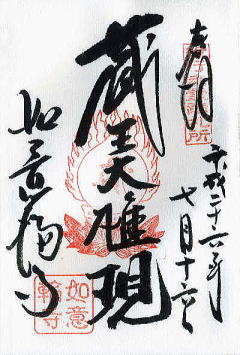 奉拝
平成二十六年
七月十六日
蔵王権現
如意輪寺
如意
輪寺